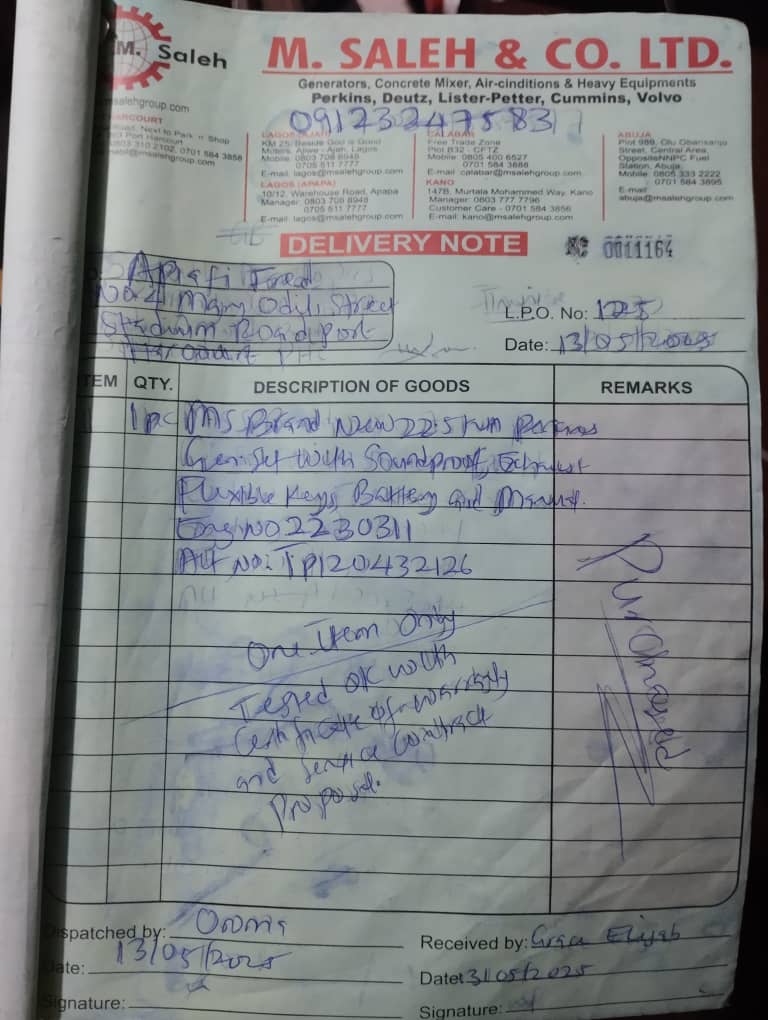 M. Saleh
M. SALEH & CO. LTD.
Generators, Concrete Mixer, Air-cinditions & Heavy Equipments
Perkins, Deutz, Lister-Petter, Cummins, Volvo
msalehgroup.com
09123247583
HARCOURT
Road, Next to Park n Shop
Port Harcourt
0803 310 2102, 0701 584 3858
@msalehgroup.com
LAGOS (AJAH)
KM 25/Beside God is Good
Motors, Ajiwe - Ajah, Lagos
Mobile: 0803 708 8948
0705 611 7777
E-mail: lagos@msalehgroup.com
LAGOS (APAPA)
10/12, Warehouse Road, Apapa
Manager: 0803 708 8948
0705 611 7777
E-mail: lagos@msalehgroup.com
CALABAR
Free Trade Zone
Plot B32 - CFTZ
Mobile: 0805 400 6527
0701 584 3868
E-mail: calabar@msalehgroup.com
KANO
147B, Murtala Mohammed Way, Kano
Manager: 0803 777 7796
Customer Care - 0701 584 3856
E-mail: kano@msalehgroup.com
ABUJA
Plot 989, Olu Obansanjo
Street, Central Area,
OppositeNNPC Fuel
Station, Abuja
Mobile: 0805 333 2222
0701 584 3895
E-mail:
abuja@msalehgroup.com
DELIVERY NOTE
0011164
No 2 Mary Odili Street
Stadium Road Port
Harcourt PHC
L.P.O. No: 125
Date: 13/05/2025
ITEM QTY. DESCRIPTION OF GOODS REMARKS
1 1pc MS Brand New 22.5 kva Perkins
Gen. Set with Soundproof, Exhaust
Fluxible Keys, Battery and Manual.
Eng NO 2230311
Alt No: TP120432126
One Item Only
Tested OK with
Certificate of warranty
and Service contract
Proposal.
Purchased
Dispatched by:
Date: 13/05/2025
Signature:
Received by: Grace Elijah
Date: 13/05/2025
Signature: